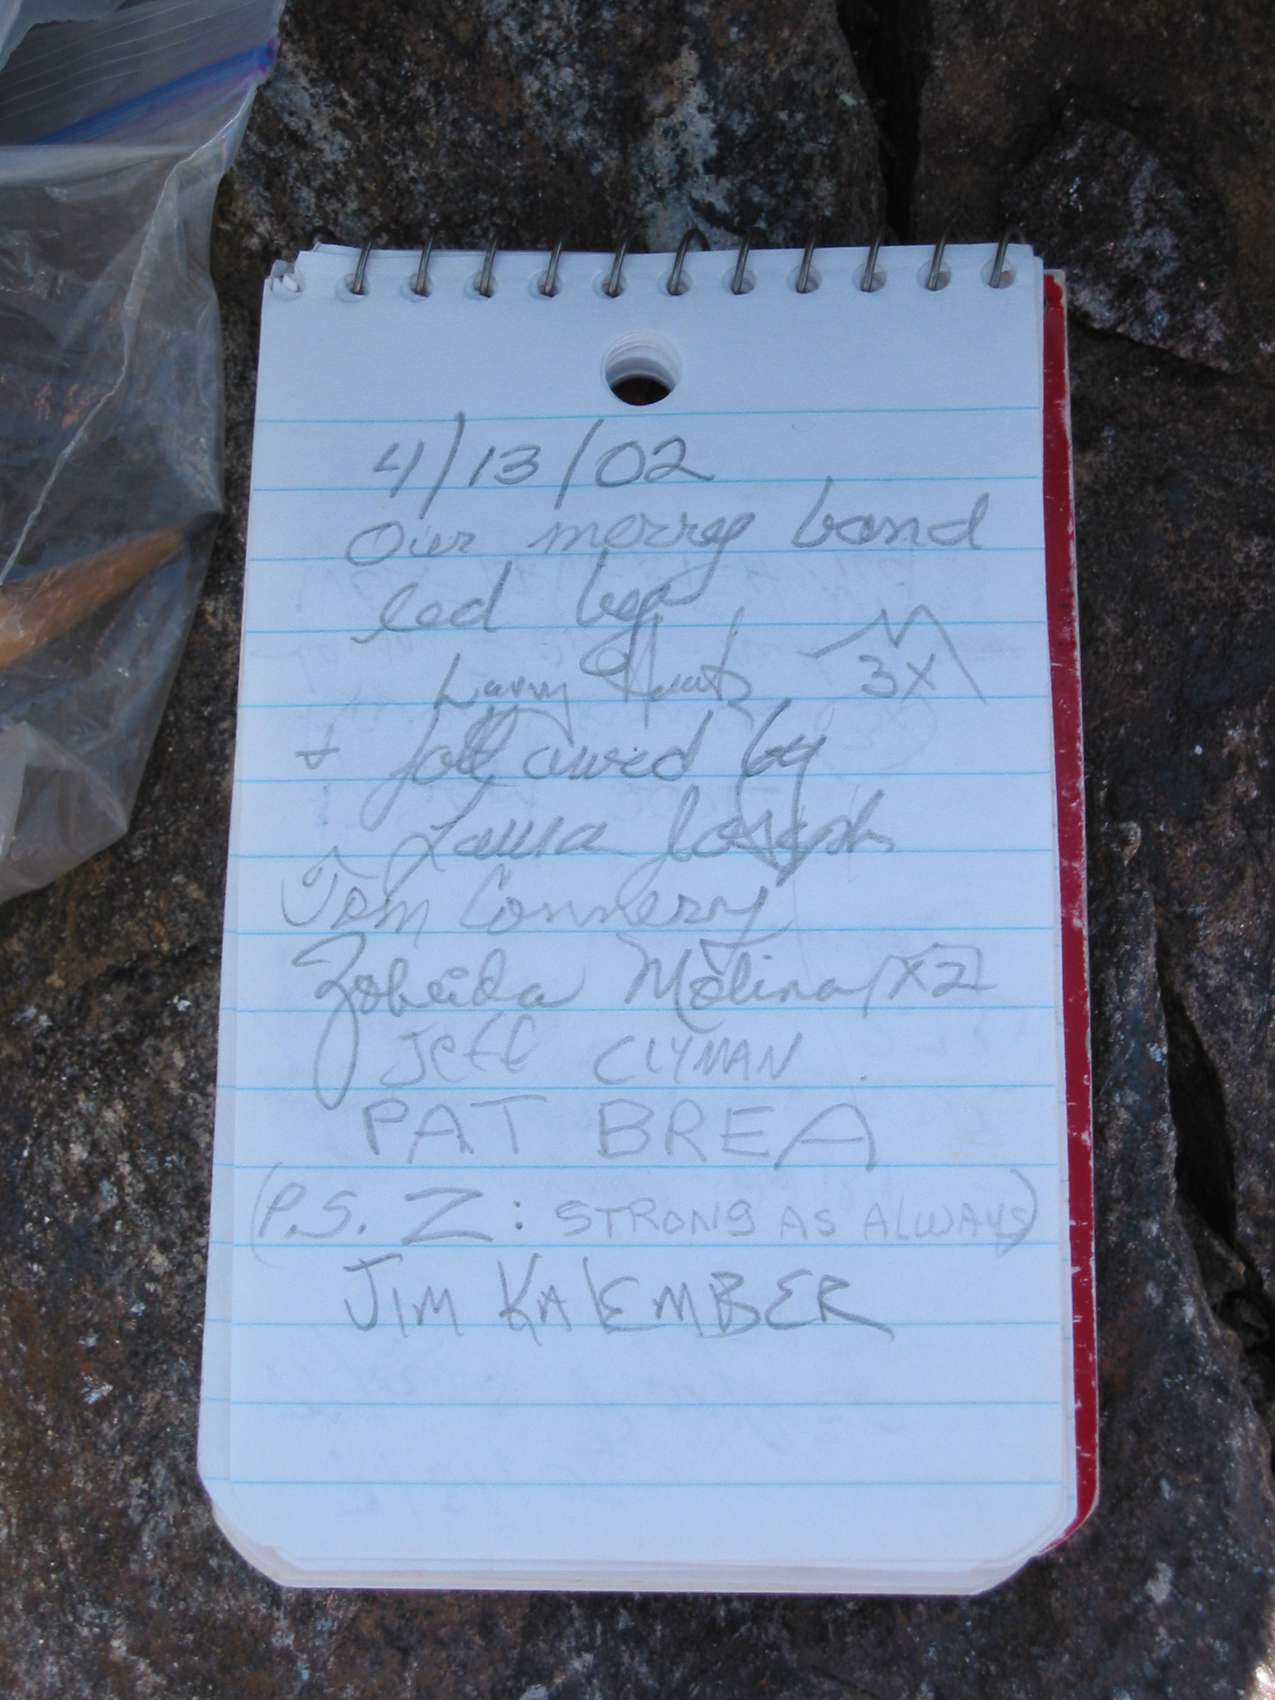 4/13/02
Our merry band
led by
Larry
3X
+ followed by
Laura Joseph
Tom Connery
Zobeida Molina X2
Jeff CLYMAN
PAT BREA
(P.S. Z: STRONG AS ALWAYS)
JIM KALEMBER